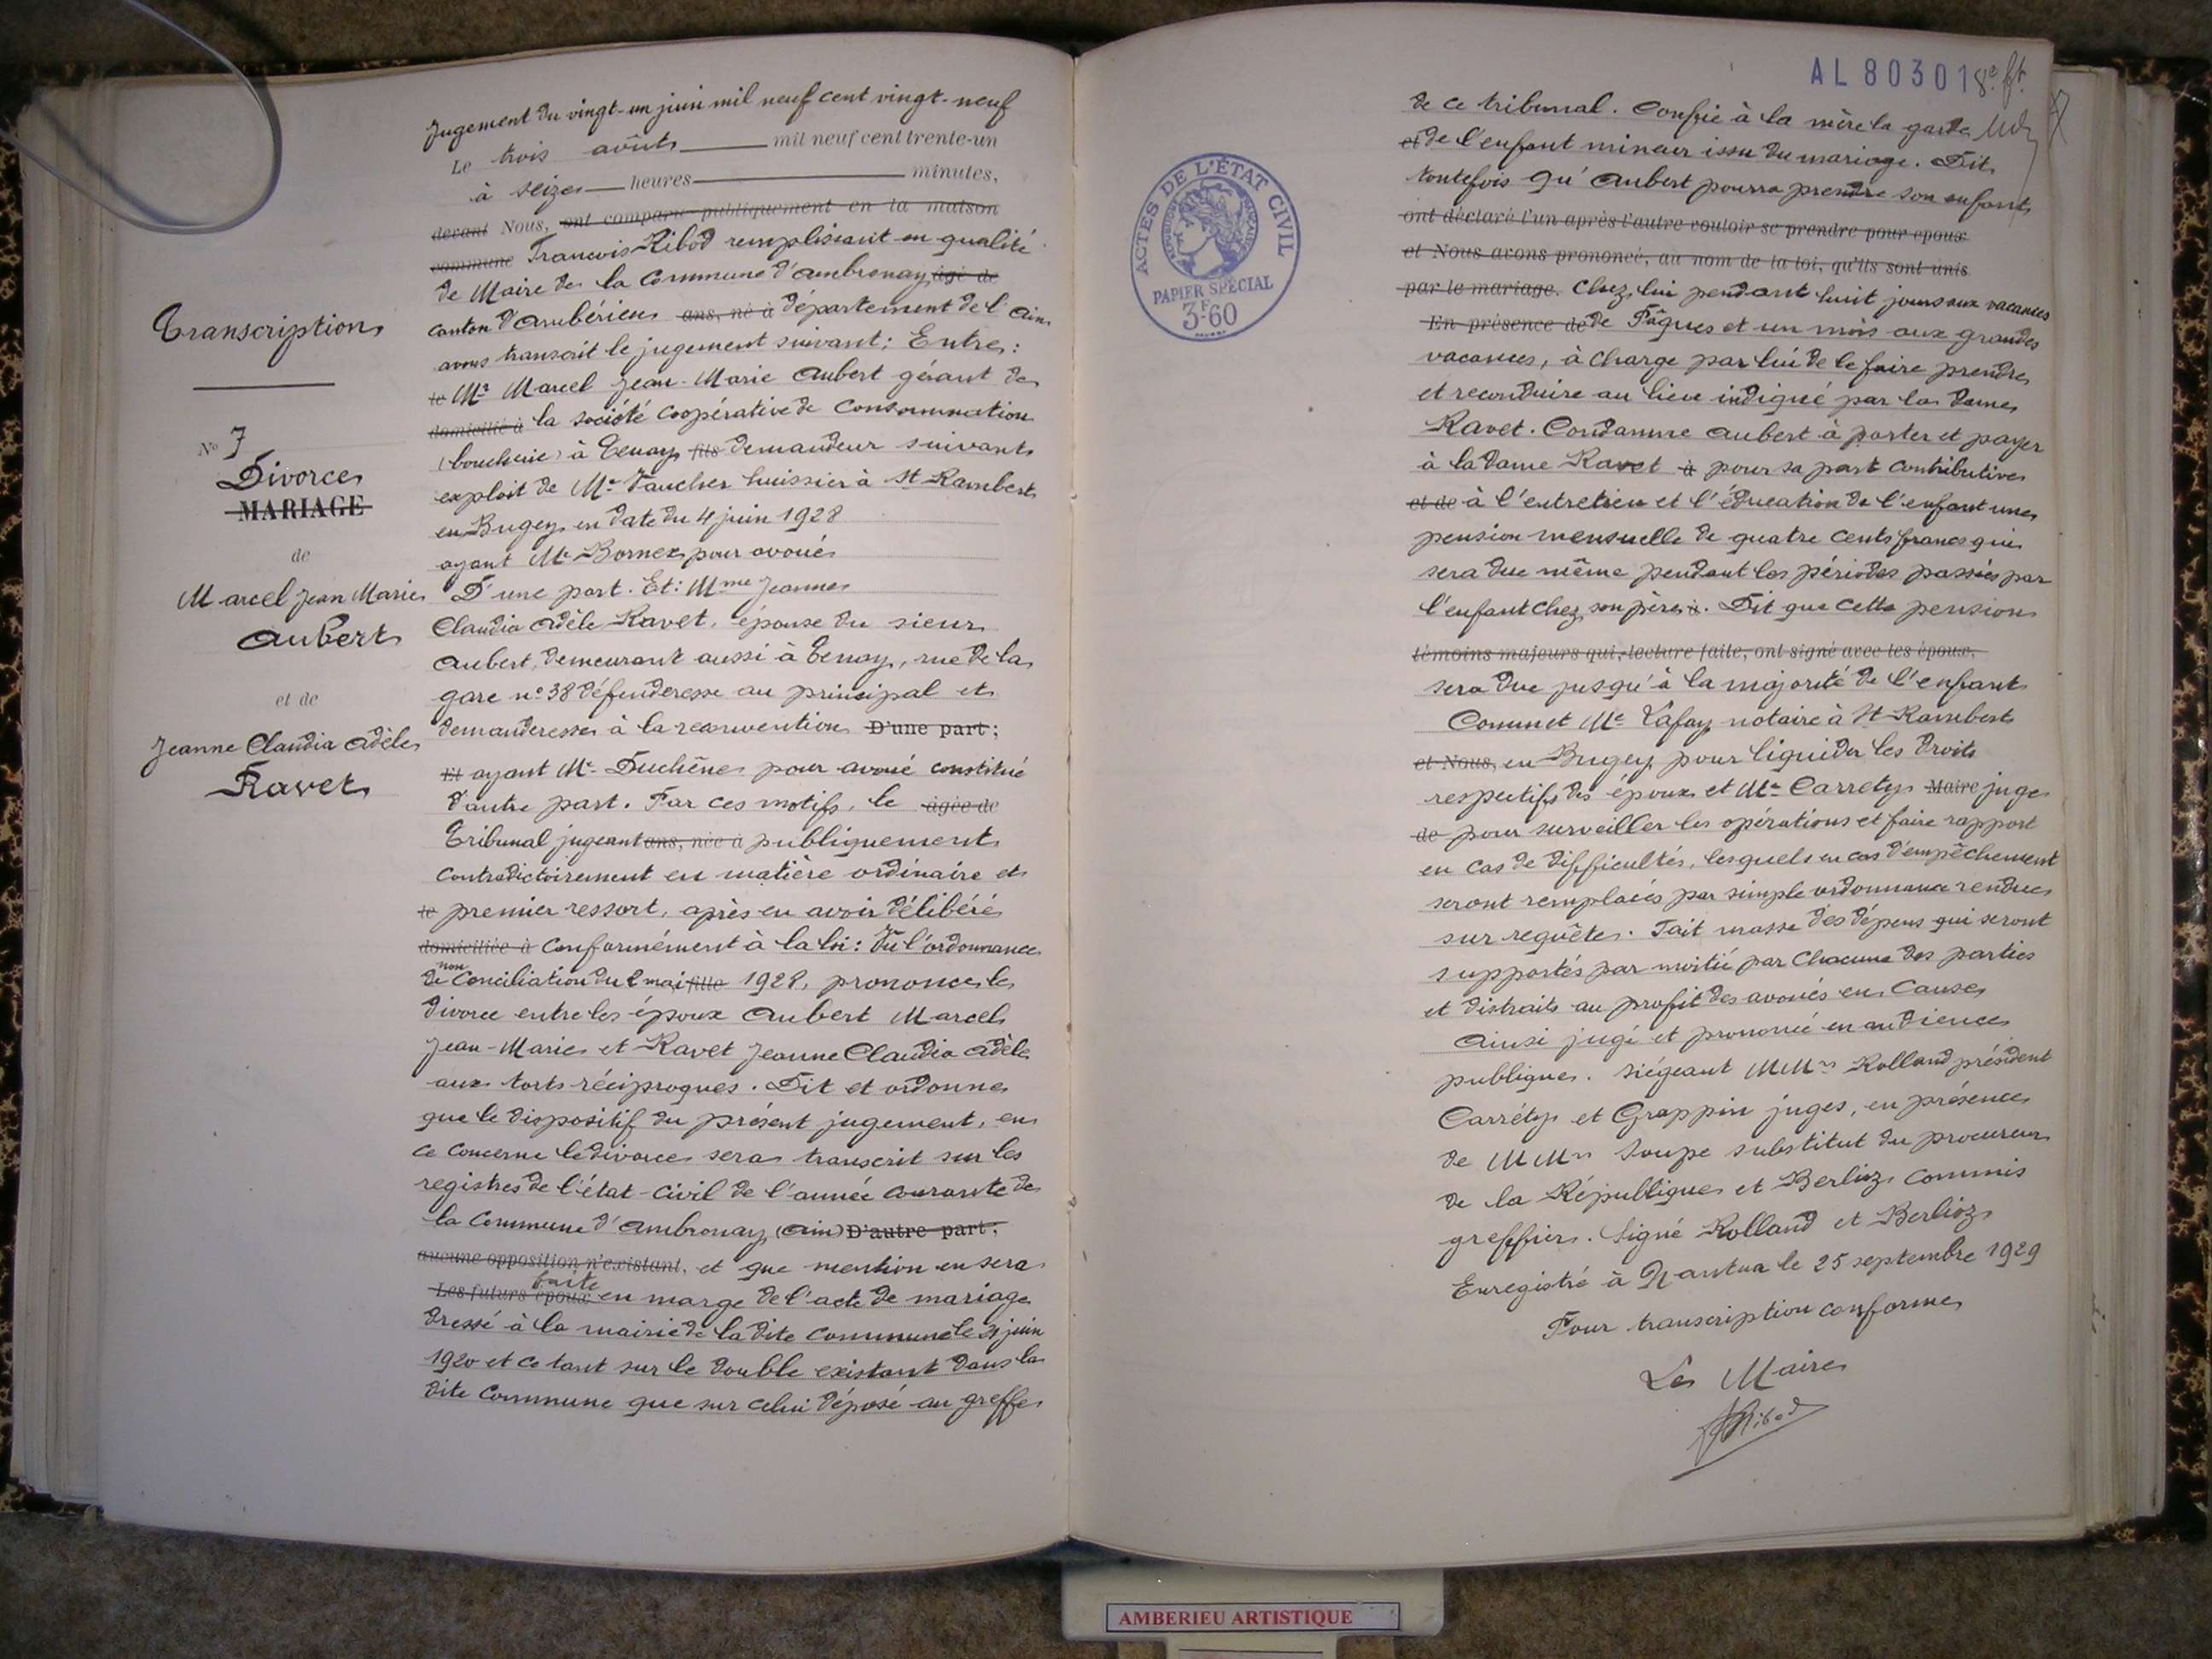 Jugement du vingt-un juin mil neuf cent vingt-neuf
Le trois août mil neuf cent trente-un
à seize heures minutes,
devant Nous, ont comparu publiquement en la maison
commune François Ribod remplissant en qualité
de Maire de la Commune d'Ambronay âgé de
canton d'Ambérieu ans, né à département de l'Ain
avons transcrit le jugement suivant: Entre:
le Mr Marcel Jean-Marie Aubert gérant de
domicilié à la société coopérative de consommation
(boucherie) à Tenay fils demandeur suivant
exploit de Me Vaucher huissier à St Rambert
en Bugey en date du 4 juin 1928
ayant Me Bornex pour avoué
D'une part. Et: Mme Jeanne
Claudia Adèle Ravet, épouse du sieur
Aubert, demeurant aussi à Tenay, rue de la
gare n° 38 défenderesse au principal et
demanderesse à la reconvention D'une part;
Et ayant Me Duchêne pour avoué constitué
d'autre part. Par ces motifs, le âgée de
Tribunal jugeant ans, née à publiquement
contradictoirement en matière ordinaire et
le premier ressort, après en avoir délibéré
domiciliée à conformément à la loi: Vu l'ordonnance
de non conciliation du 2 mai fille 1928, prononce le
divorce entre les époux Aubert Marcel
Jean-Marie et Ravet Jeanne Claudia Adèle
aux torts réciproques. Dit et ordonne
que le dispositif du présent jugement, en
ce concerne le divorce sera transcrit sur les
registres de l'état-civil de l'année courante de
la Commune d'Ambronay (Ain) D'autre part;
aucune opposition n'existant, et que mention en sera
Les futurs époux faite en marge de l'acte de mariage
dressé à la mairie de la dite commune le juin
1920 et ce tant sur le double existant dans la
dite Commune que sur celui déposé au greffe
Transcription
N° 7
Divorce
MARIAGE
de
Marcel Jean Marie
Aubert
et de
Jeanne Claudia Adèle
Ravet
ACTES DE L'ÉTAT CIVIL
RÉPUBLIQUE FRANÇAISE
PAPIER SPÉCIAL
3F60
AL 80301 8e ft.
de ce tribunal. Confie à la mère la garde
et de l'enfant mineur issu du mariage. Dit
toutefois qu'Aubert pourra prendre son enfant
ont déclaré l'un après l'autre vouloir se prendre pour époux
et Nous avons prononcé, au nom de la loi, qu'ils sont unis
par le mariage. Chez lui pendant huit jours aux vacances
En présence de de Pâques et un mois aux grandes
vacances, à charge par lui de le faire prendre
et reconduire au lieu indiqué par la dame
Ravet. Condamne Aubert à porter et payer
à la dame Ravet à pour sa part contributive
et de à l'entretien et l'éducation de l'enfant une
pension mensuelle de quatre cents francs qui
sera due même pendant les périodes passées par
l'enfant chez son père à. Dit que cette pension
témoins majeurs qui, lecture faite, ont signé avec les époux,
sera due jusqu'à la majorité de l'enfant
Commet Me Lafay notaire à St-Rambert
et Nous, en Bugey pour liquider les droits
respectifs des époux et Mr Carrety Maire juge
de pour surveiller les opérations et faire rapport
en cas de difficultés, lesquels en cas d'empêchement
seront remplacés par simple ordonnance rendue
sur requête. Fait masse des dépens qui seront
supportés par moitié par chacune des parties
et distraits au profit des avoués en cause
Ainsi jugé et prononcé en audience
publique. Siégeant MMrs Rolland président
Carréty et Grappin juges, en présence
de MMrs Soupe substitut du procureur
de la République et Berlioz commis
greffier. Signé Rolland et Berlioz
Enregistré à Nantua le 25 septembre 1929
Pour transcription conforme
Le Maire
Ribod
AMBERIEU ARTISTIQUE